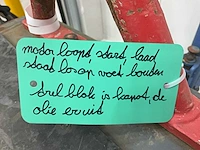 motor loopt, start, laad
staat los op, voet houten
tril blok is kapot, de
olie er uit